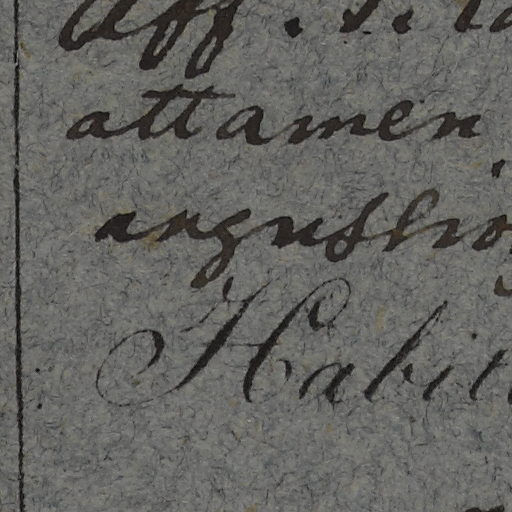 Aff. S.
attamen
angustio
Habit